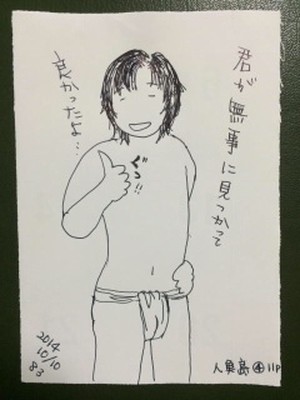 君が無事に見つかって
良かったよ…
ぐっ!!
2014
10/10
83
人負島④11P